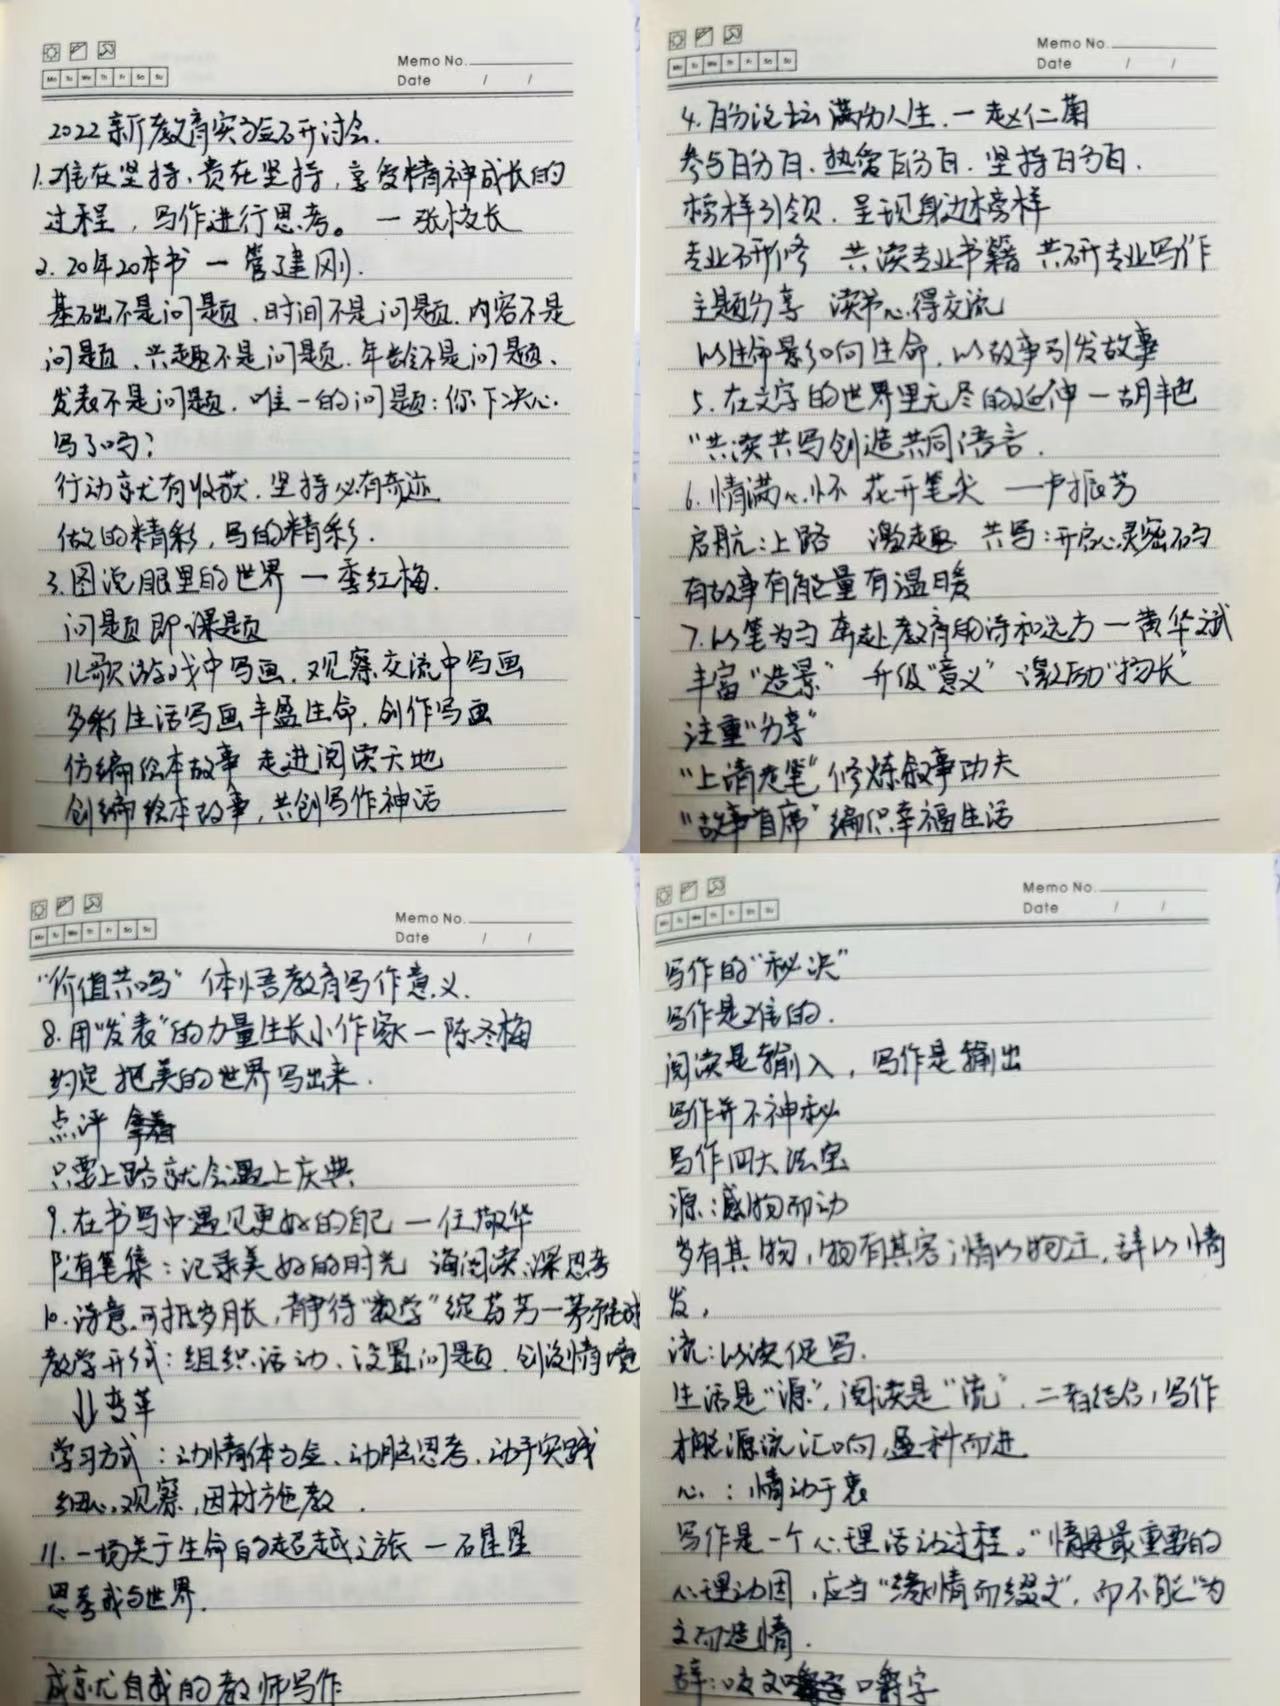 Memo No.
Date / /
Mo Tu We Th Fr Sa Su
2022新教育实验研讨会.
1.难在坚持、贵在坚持,享受精神成长的
过程,写作进行思考。—张校长
2.20年20本书—管建刚.
基础不是问题、时间不是问题、内容不是
问题、兴趣不是问题、年龄不是问题、
发表不是问题.唯一的问题:你下决心
写了吗?
行动就有收获.坚持必有奇迹
做的精彩,写的精彩.
3.图说眼里的世界—季红梅.
问题即课题
儿歌游戏中写画.观察交流中写画
多彩生活写画丰盈生命.创作写画
仿编绘本故事 走进阅读天地
创编绘本故事,共创写作神话
Memo No.
Date / /
Mo Tu We Th Fr Sa Su
4.百分论坛 满分人生.—赵仁菊
参与百分百.热爱百分百.坚持百分百.
榜样引领.呈现身边榜样
专业研修 共读专业书籍 共研专业写作
主题分享 读书心得交流
以生命影响生命.以故事引发故事
5.在文字的世界里无尽的延伸—胡艳
"共读共写创造共同语言.
6.情满心怀 花开笔尖 —卢振芳
启航:上路 激趣 共写:开启心灵密码
有故事有能量有温暖
7.以笔为马 奔赴教育的诗和远方—黄华斌
丰富"造景" 升级"意义" 激励"扬长"
注重"分享"
"上清夜笔"修炼叙事功夫
"故事首席"编织幸福生活
Memo No.
Date / /
Mo Tu We Th Fr Sa Su
"价值共鸣"体悟教育写作意义.
8.用"发表"的力量生长小作家—陈冬梅
约定 把美的世界写出来.
点评
只要上路就会遇上庆典
9.在书写中遇见更好的自己—任敬华
随笔集:记录美好的时光 海阅读、深思考
10.诗意可抵岁月长,静待"数学"绽芬芳—茅
教学开式:组织活动、设置问题.创设情境
变革
学习方式:动情体会、动脑思考、动手实践
细心观察,因材施教.
11.一场关于生命的超越之旅—石星星
思考我与世界.
成就自我的教师写作
Memo No.
Date / /
Mo Tu We Th Fr Sa Su
写作的"秘决"
写作是难的.
阅读是输入,写作是输出
写作并不神秘
写作四大法宝
源:感物而动
岁有其物,物有其容;情以物迁,辞以情
发,
流:以读促写.
生活是"源",阅读是"流".二者结合,写作
才能源流汇响,盈科而进
心:情动于衷
写作是一个心理活动过程。"情是最重要的
心理动因,应当"缘情而缀文",而不能"为
文而造情.
辞:咬文嚼字